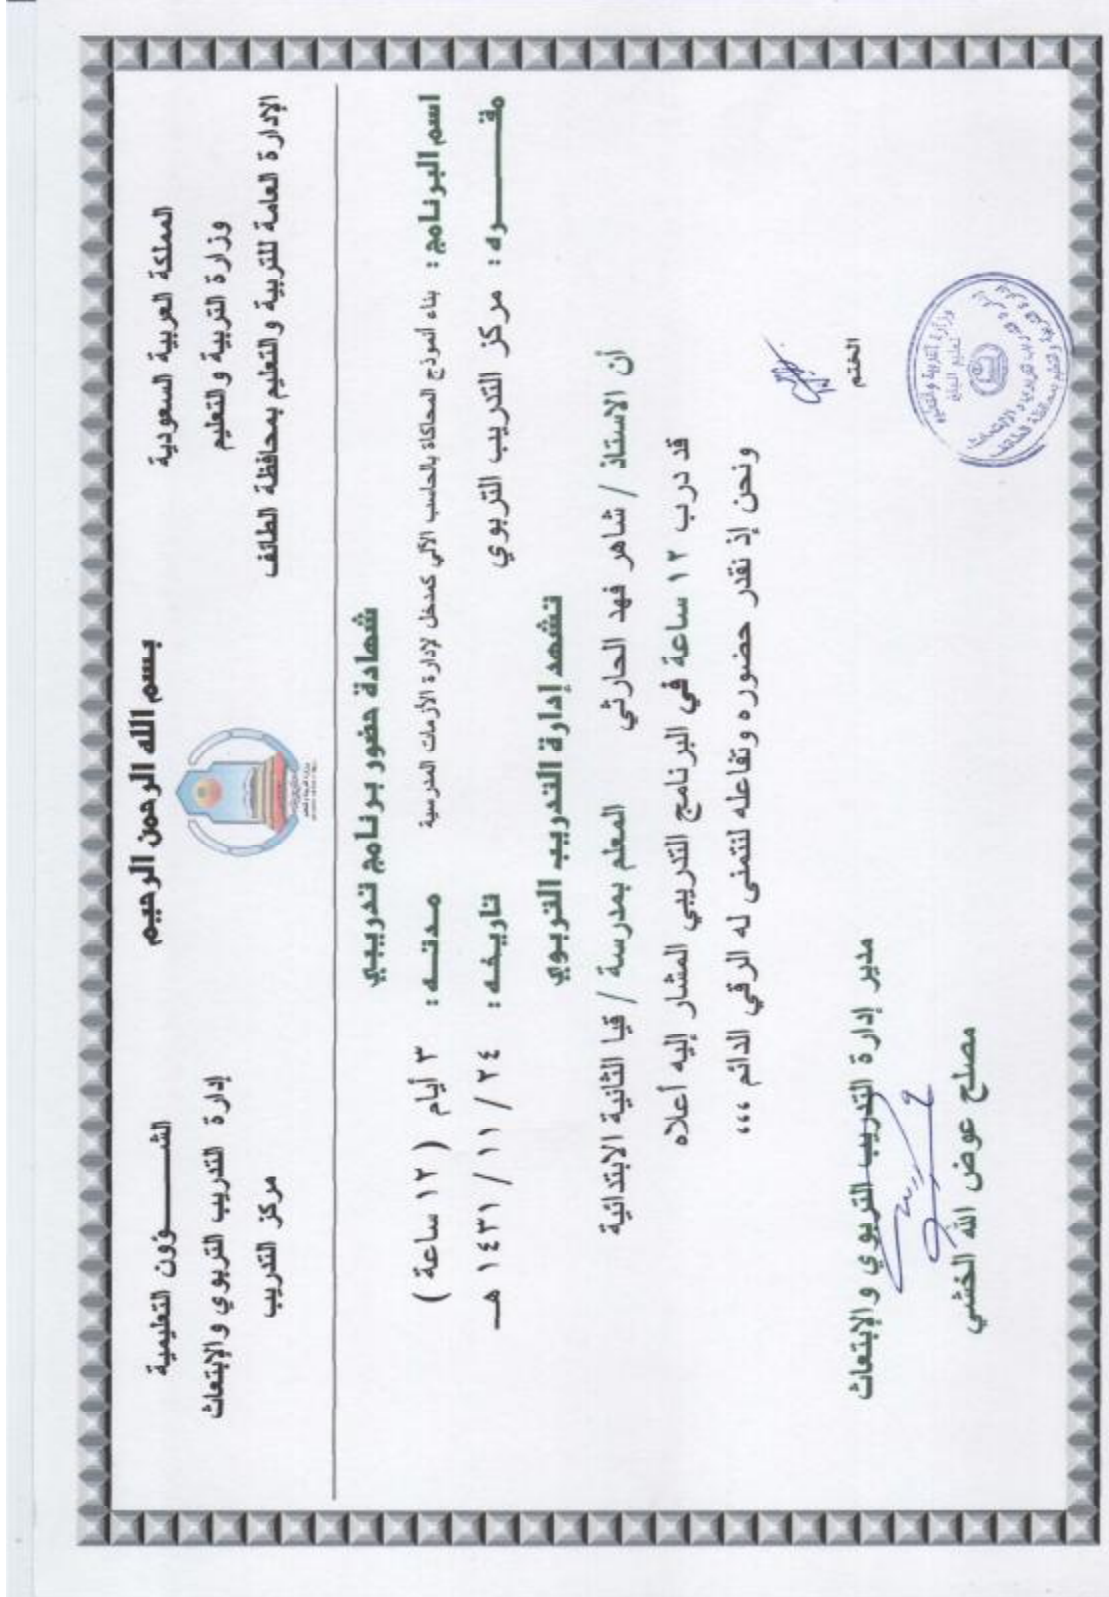 بسم الله الرحمن الرحيم
المملكة العربية السعودية
وزارة التربية والتعليم
الإدارة العامة للتربية والتعليم بمحافظة الطائف
الشـــــــؤون التعليمية
إدارة التدريب التربوي والإبتعاث
مركز التدريب
شهادة حضور برنامج تدريبي
اسم البرنامج : بناء أنموذج المحاكاة بالحاسب الآلي كمدخل لإدارة الأزمات المدرسية مـدتـــه : ٣ أيام ( ١٢ ساعة )
مقـــــــره : مركز التدريب التربوي تاريخـه : ٢٤ / ١١ / ١٤٣١ هـــ
تشهد إدارة التدريب التربوي
أن الاستاذ / شاهر فهد الحارثي المعلم بمدرسة / قيا الثانية الابتدائية
قد درب ١٢ ساعة في البرنامج التدريبي المشار إليه أعلاه
ونحن إذ نقدر حضوره وتفاعله لنتمنى له الرقي الدائم ،،،
الختم
مدير إدارة التدريب التربوي والإبتعاث
مصلح عوض الله الخشي
وزارة التربية والتعليم